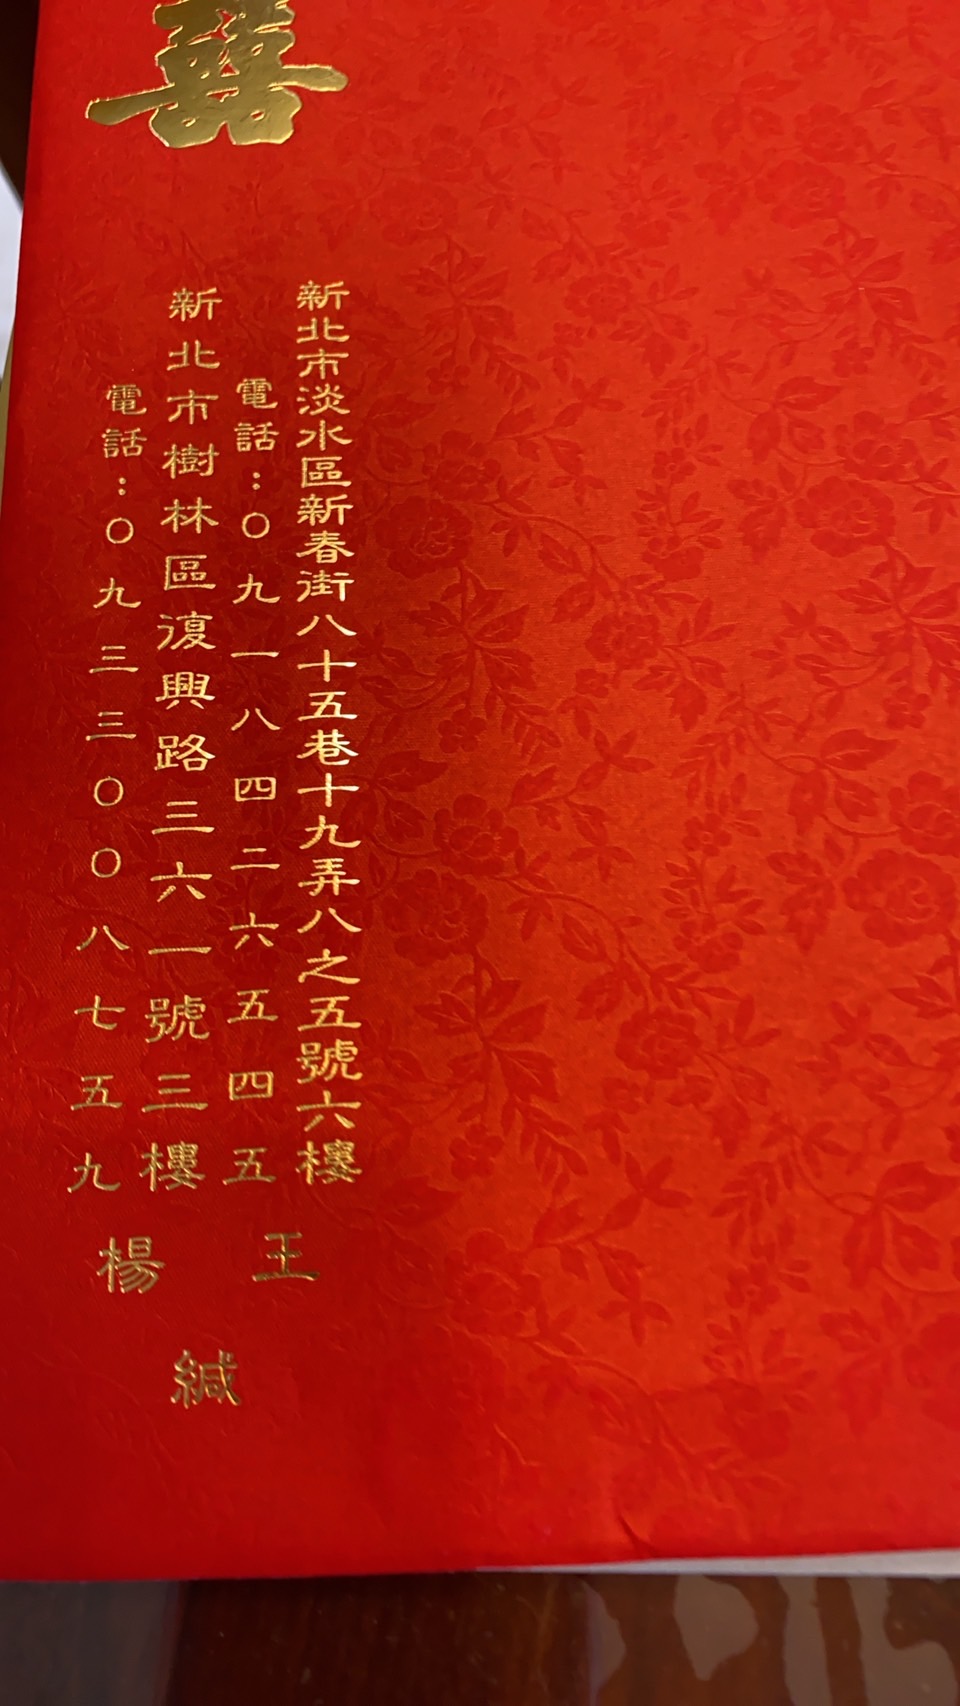 囍
新北市淡水區新春街八十五巷十九弄八之五號六樓
電話：〇九一八四二六五四五
新北市樹林區復興路三六一號三樓
電話：〇九三三〇〇八七五九
王
楊
緘